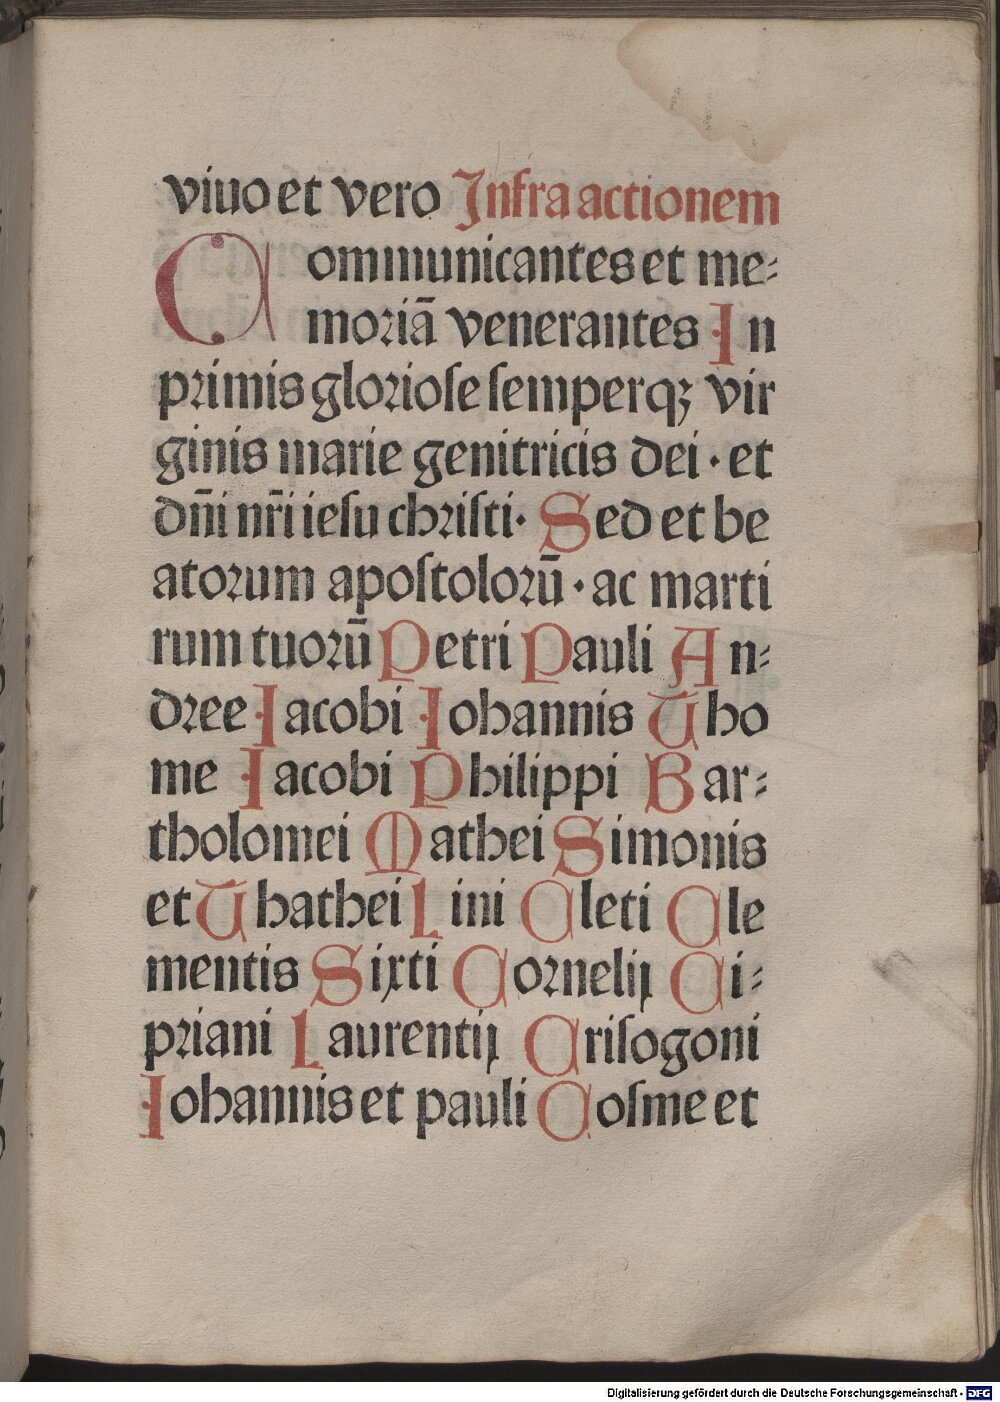 viuo et vero Infra actionem
Communicantes et me-
moriā venerantes In
primis gloriose semperqꝫ vir
ginis marie genitricis dei · et
dn̄i nr̄i iesu christi · Sed et be
atorum apostolorū · ac marti
rum tuorū Petri Pauli An-
dree Jacobi Johannis Tho
me Jacobi Philippi Bar-
tholomei Mathei Simonis
et Thathei Lini Cleti Cle
mentis Sixti Cornelij Ci-
priani Laurentij Crisogoni
Johannis et pauli Cosme et
Digitalisierung gefördert durch die Deutsche Forschungsgemeinschaft - DFG